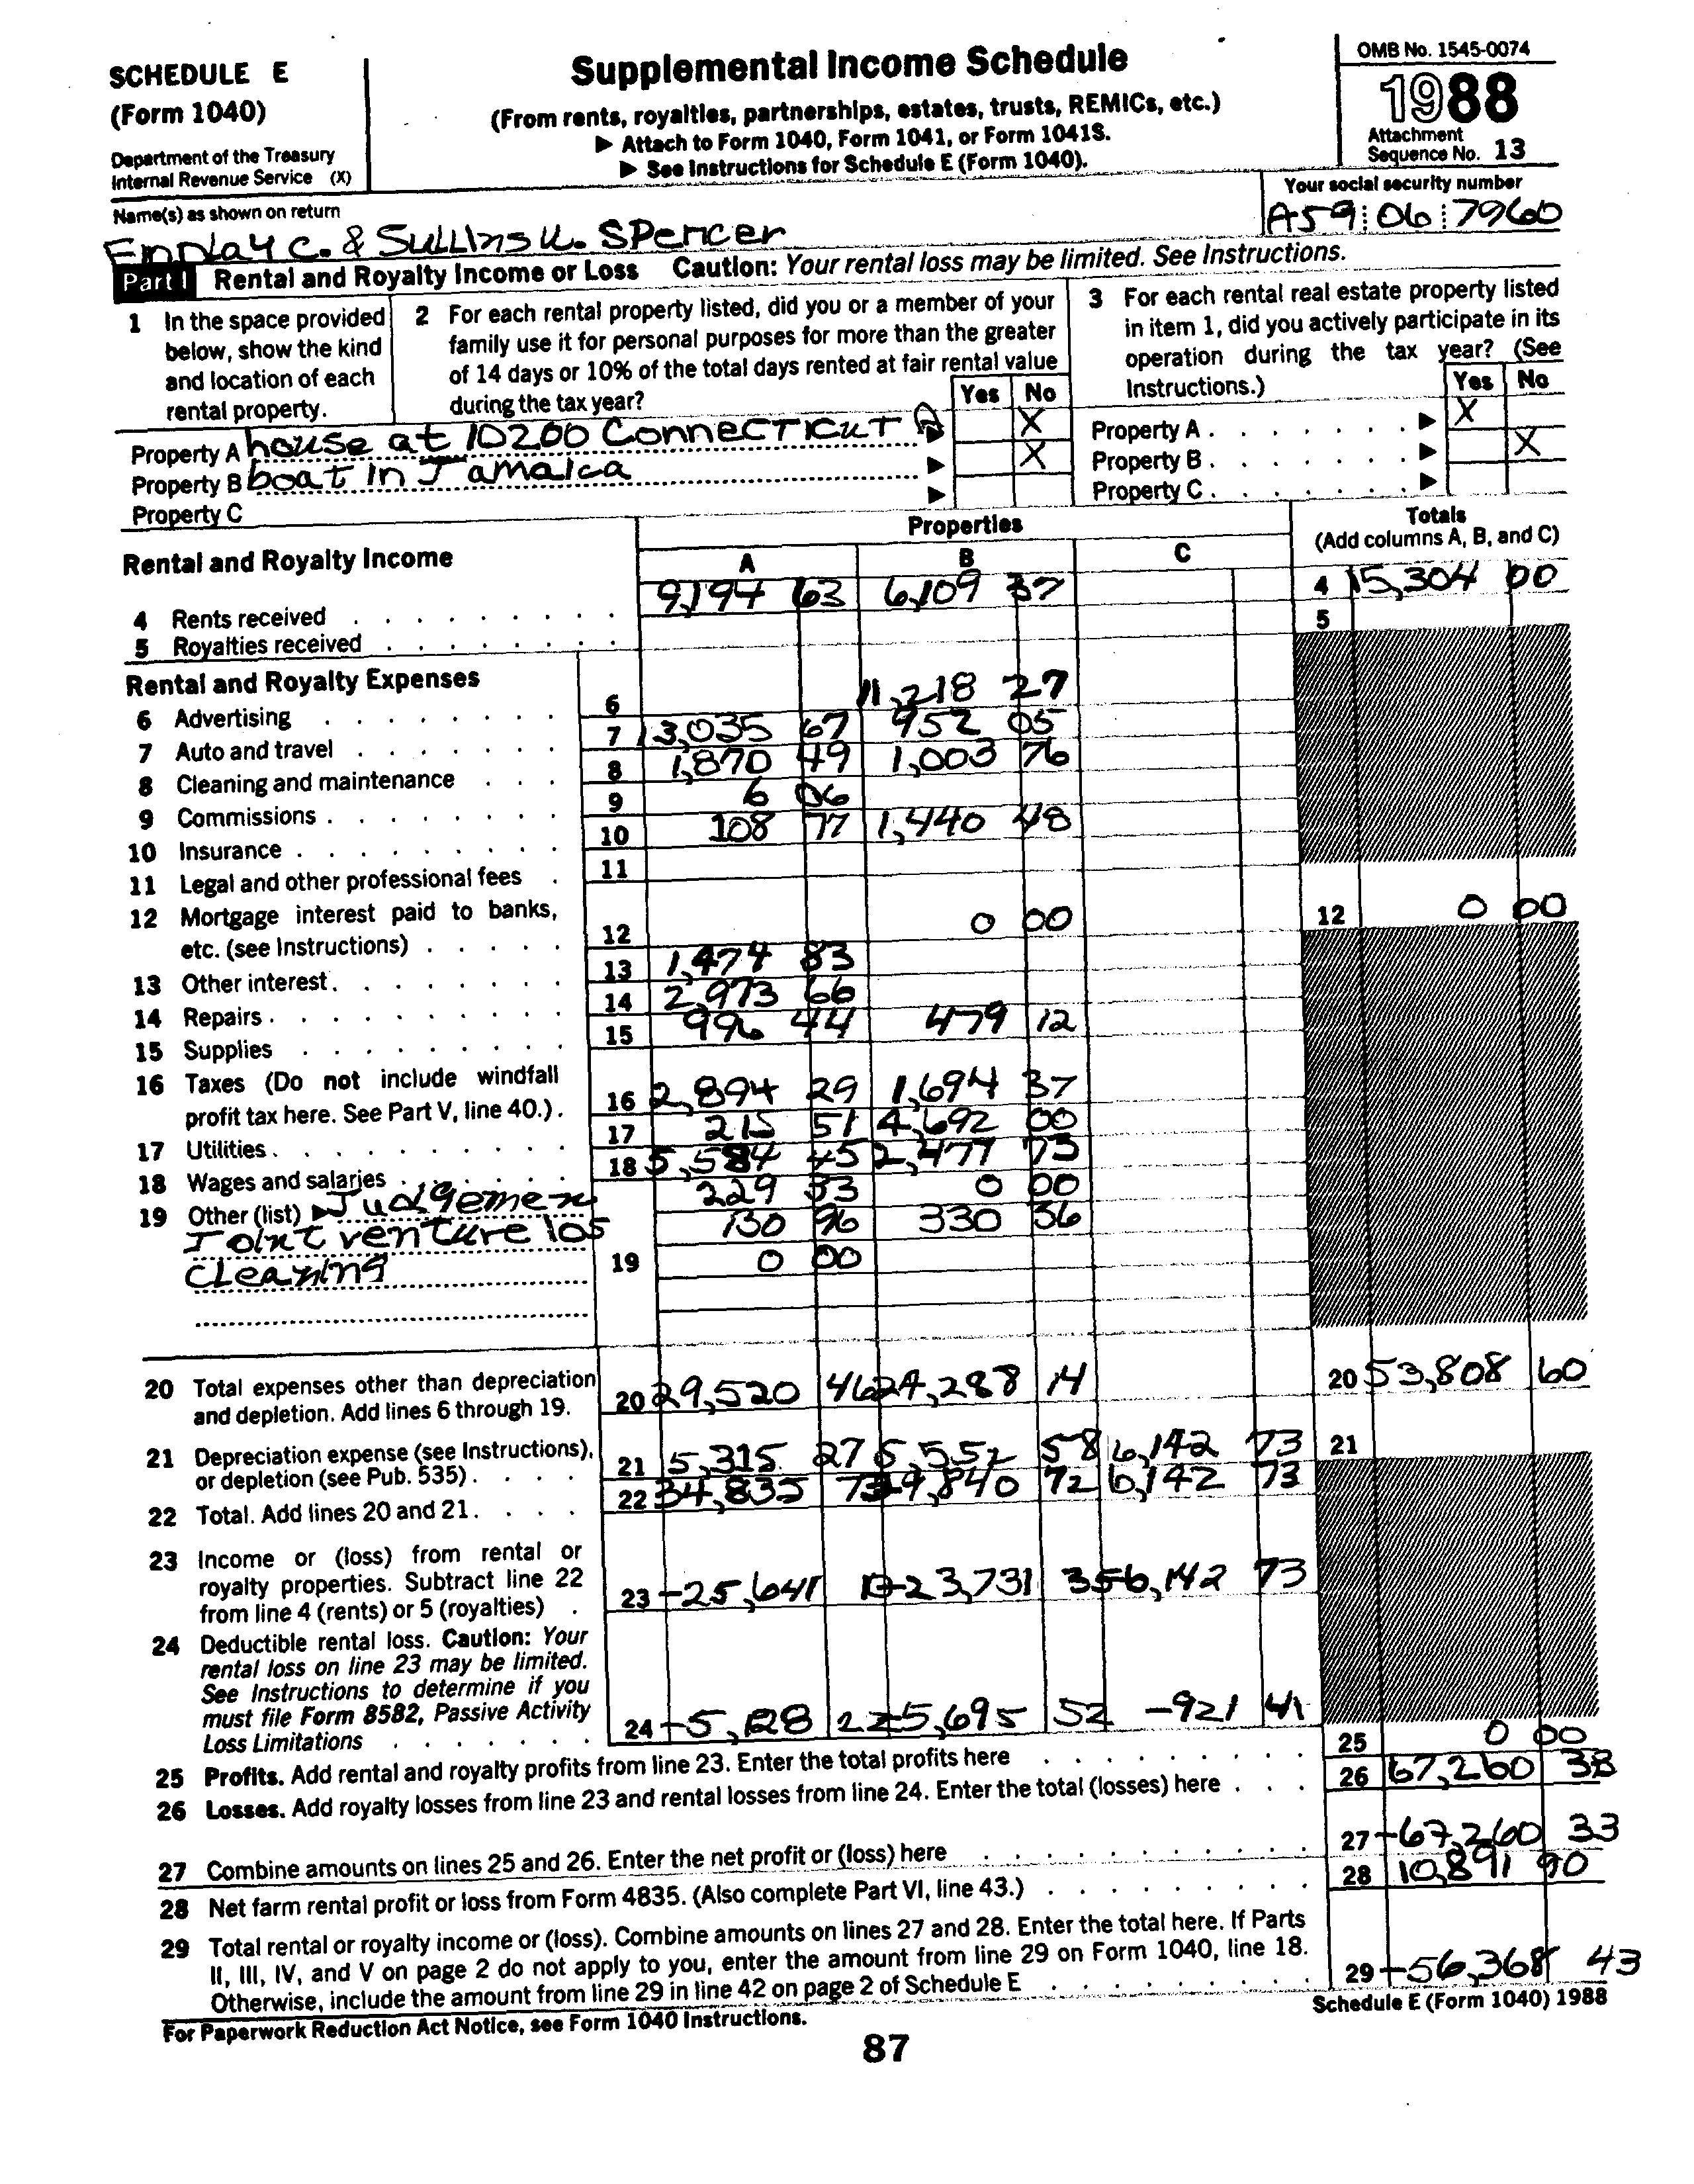 SCHEDULE E
(Form 1040)
Department of the Treasury
Internal Revenue Service (X)
Supplemental Income Schedule
(From rents, royalties, partnerships, estates, trusts, REMICs, etc.)
▶ Attach to Form 1040, Form 1041, or Form 1041S.
▶ See Instructions for Schedule E (Form 1040).
OMB No. 1545-0074
1988
Attachment
Sequence No. 13
Name(s) as shown on return
Your social security number
C. & SULLINS U. SPENCER
A59 06 7960
Part I Rental and Royalty Income or Loss Caution: Your rental loss may be limited. See Instructions.
1 In the space provided
below, show the kind
and location of each
rental property.
2 For each rental property listed, did you or a member of your
family use it for personal purposes for more than the greater
of 14 days or 10% of the total days rented at fair rental value
during the tax year?
Yes No
3 For each rental real estate property listed
in item 1, did you actively participate in its
operation during the tax year? (See
Instructions.)
Yes No
Property A house at 10200 CONNECTICUT ▶ X
Property B boat in Jamaica ▶ X
Property C ▶
Property A . . . . . . . ▶ X
Property B . . . . . . . ▶ X
Property C . . . . . . . ▶
Rental and Royalty Income
Properties
A B C
Totals
(Add columns A, B, and C)
4 Rents received 9,194 63 6,109 37 4 15,304 00
5 Royalties received 5
Rental and Royalty Expenses
6 Advertising 6 11,218 27
7 Auto and travel 7 3,035 67 952 05
8 Cleaning and maintenance 8 1,870 49 1,003 76
9 Commissions 9 6 06
10 Insurance 10 108 77 1,440 48
11 Legal and other professional fees 11
12 Mortgage interest paid to banks,
etc. (see Instructions) 12 0 00 12 0 00
13 Other interest 13 1,474 83
14 Repairs 14 2,973 66
15 Supplies 15 996 44 479 12
16 Taxes (Do not include windfall
profit tax here. See Part V, line 40.) 16 2,894 29 1,694 37
17 Utilities 17 215 51 4,692 00
18 Wages and salaries 18 5,584 45 2,477 73
19 Other (list) ▶ Judgemen 229 33 0 00
Joint venture los 130 96 330 36
Cleaning 19 0 00
20 Total expenses other than depreciation
and depletion. Add lines 6 through 19. 20 29,520 46 24,288 14 20 53,808 60
21 Depreciation expense (see Instructions),
or depletion (see Pub. 535) 21 5,315 27 5,552 58 6,142 73 21
22 Total. Add lines 20 and 21 22 34,835 73 29,840 72 6,142 73
23 Income or (loss) from rental or
royalty properties. Subtract line 22
from line 4 (rents) or 5 (royalties) 23 -25,641 10 -23,731 35 -6,142 73
24 Deductible rental loss. Caution: Your
rental loss on line 23 may be limited.
See Instructions to determine if you
must file Form 8582, Passive Activity
Loss Limitations 24 22 -5,695 52 -921 41
25 Profits. Add rental and royalty profits from line 23. Enter the total profits here 25 0 00
26 Losses. Add royalty losses from line 23 and rental losses from line 24. Enter the total (losses) here 26 67,260 38
27 Combine amounts on lines 25 and 26. Enter the net profit or (loss) here 27 -67,260 33
28 Net farm rental profit or loss from Form 4835. (Also complete Part VI, line 43.) 28 10,891 90
29 Total rental or royalty income or (loss). Combine amounts on lines 27 and 28. Enter the total here. If Parts
II, III, IV, and V on page 2 do not apply to you, enter the amount from line 29 on Form 1040, line 18.
Otherwise, include the amount from line 29 in line 42 on page 2 of Schedule E 29 -56,368 43
For Paperwork Reduction Act Notice, see Form 1040 Instructions.
Schedule E (Form 1040) 1988
87